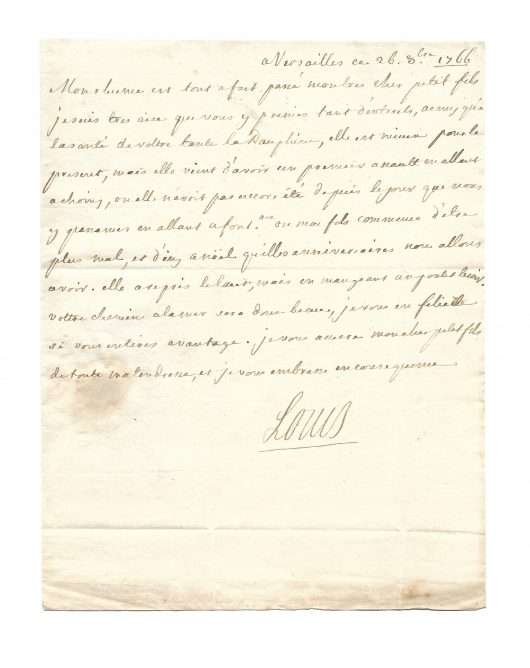 a Versailles ce 26. 8.bre 1766
Mon rhume est tout a fait passé mon tres cher petit fils
je suis tres aise que vous y preniés tant d'interest, ainsy qu'a
la santé de vostre tante la Dauphine, elle est mieux pour le
present, mais elle vient d'avoir un premier assault en allant
a choisy, ou elle n'avoit pas encore été depuis le jour que nous
y passames en allant a font.au ou mon fils commença d'estre
plus mal, et d'icy a noël quels anniversaires nous allons
avoir. elle a repris le lait, mais en mangeant un potage le soir.
vostre chemin a la mer sera donc beau, je vous en felicite
si vous en tirés avantage. je vous assure mon cher petit fils
de toute ma tendresse, et je vous embrasse en consequence
Louis